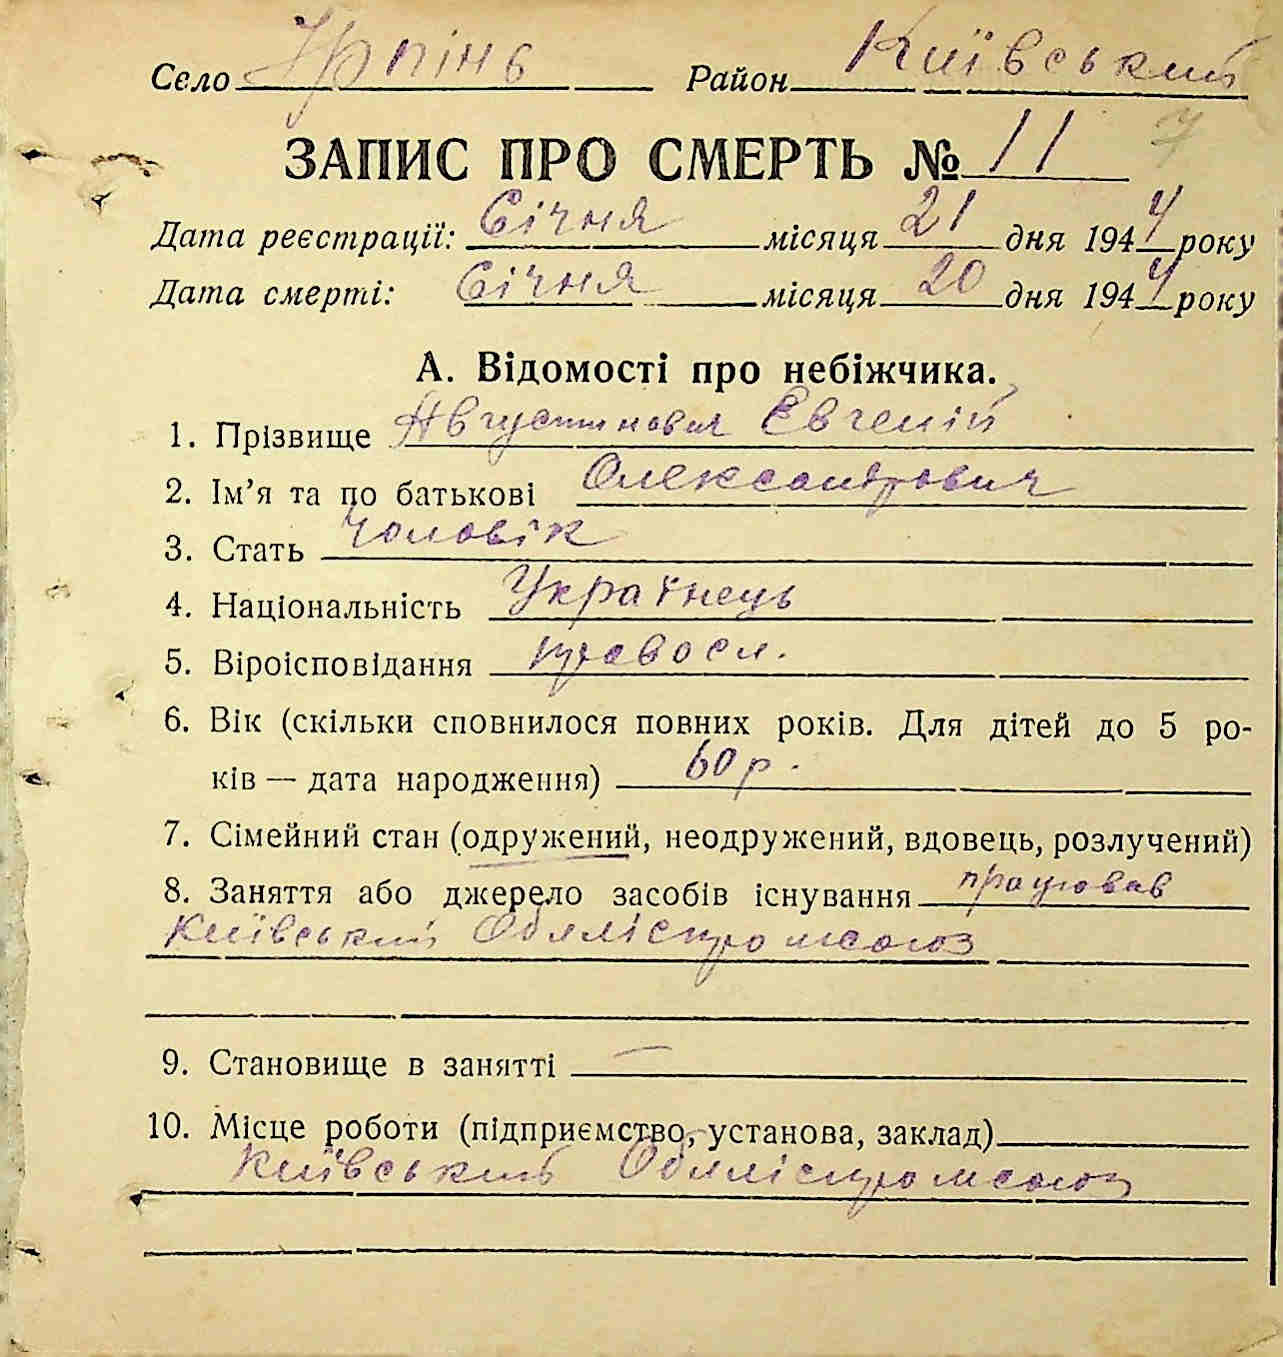 Село Ірпінь Район Київський
ЗАПИС ПРО СМЕРТЬ № 11 7
Дата реєстрації: Січня місяця 21 дня 1944 року
Дата смерті: Січня місяця 20 дня 1944 року
А. Відомості про небіжчика.
1. Прізвище Августинович Євгеній
2. Ім’я та по батькові Олександрович
3. Стать чоловік
4. Національність Українець
5. Віроісповідання правосл.
6. Вік (скільки сповнилося повних років. Для дітей до 5 ро-
ків — дата народження) 60 р.
7. Сімейний стан (одружений, неодружений, вдовець, розлучений)
8. Заняття або джерело засобів існування працював
Київський Облліспромсоюз
9. Становище в занятті —
10. Місце роботи (підприємство, установа, заклад)
Київський Облліспромсоюз